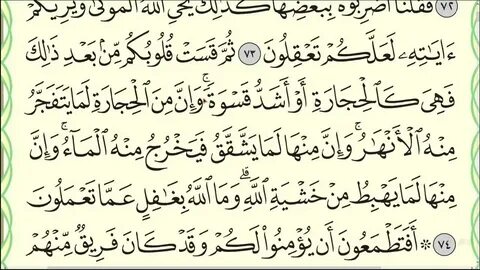 فَقُلْنَا ٱضْرِبُوهُ بِبَعْضِهَا كَذَٰلِكَ يُحْيِ ٱللَّهُ ٱلْمَوْتَىٰ وَيُرِيكُمْ ٧٢
ءَايَٰتِهِۦ لَعَلَّكُمْ تَعْقِلُونَ ٧٣ ثُمَّ قَسَتْ قُلُوبُكُم مِّنۢ بَعْدِ ذَٰلِكَ
فَهِىَ كَٱلْحِجَارَةِ أَوْ أَشَدُّ قَسْوَةً ۚ وَإِنَّ مِنَ ٱلْحِجَارَةِ لَمَا يَتَفَجَّرُ
مِنْهُ ٱلْأَنْهَٰرُ ۚ وَإِنَّ مِنْهَا لَمَا يَشَّقَّقُ فَيَخْرُجُ مِنْهُ ٱلْمَآءُ ۚ وَإِنَّ
مِنْهَا لَمَا يَهْبِطُ مِنْ خَشْيَةِ ٱللَّهِ ۗ وَمَا ٱللَّهُ بِغَٰفِلٍ عَمَّا تَعْمَلُونَ
٧٤ * أَفَتَطْمَعُونَ أَن يُؤْمِنُوا۟ لَكُمْ وَقَدْ كَانَ فَرِيقٌ مِّنْهُمْ